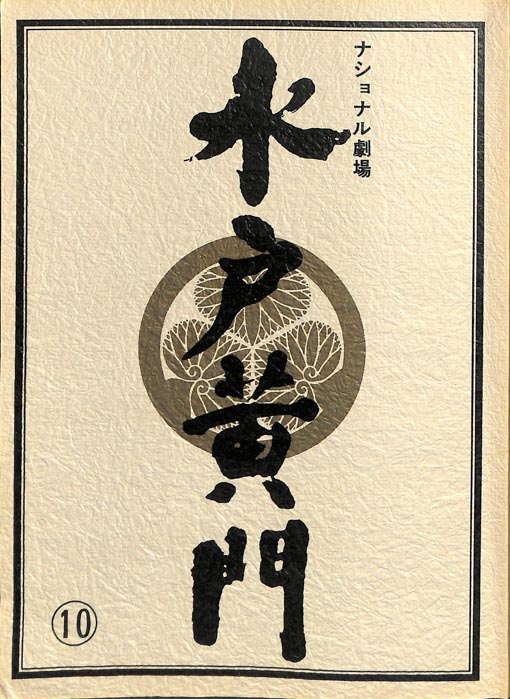 ナショナル劇場
水戸黄門
10